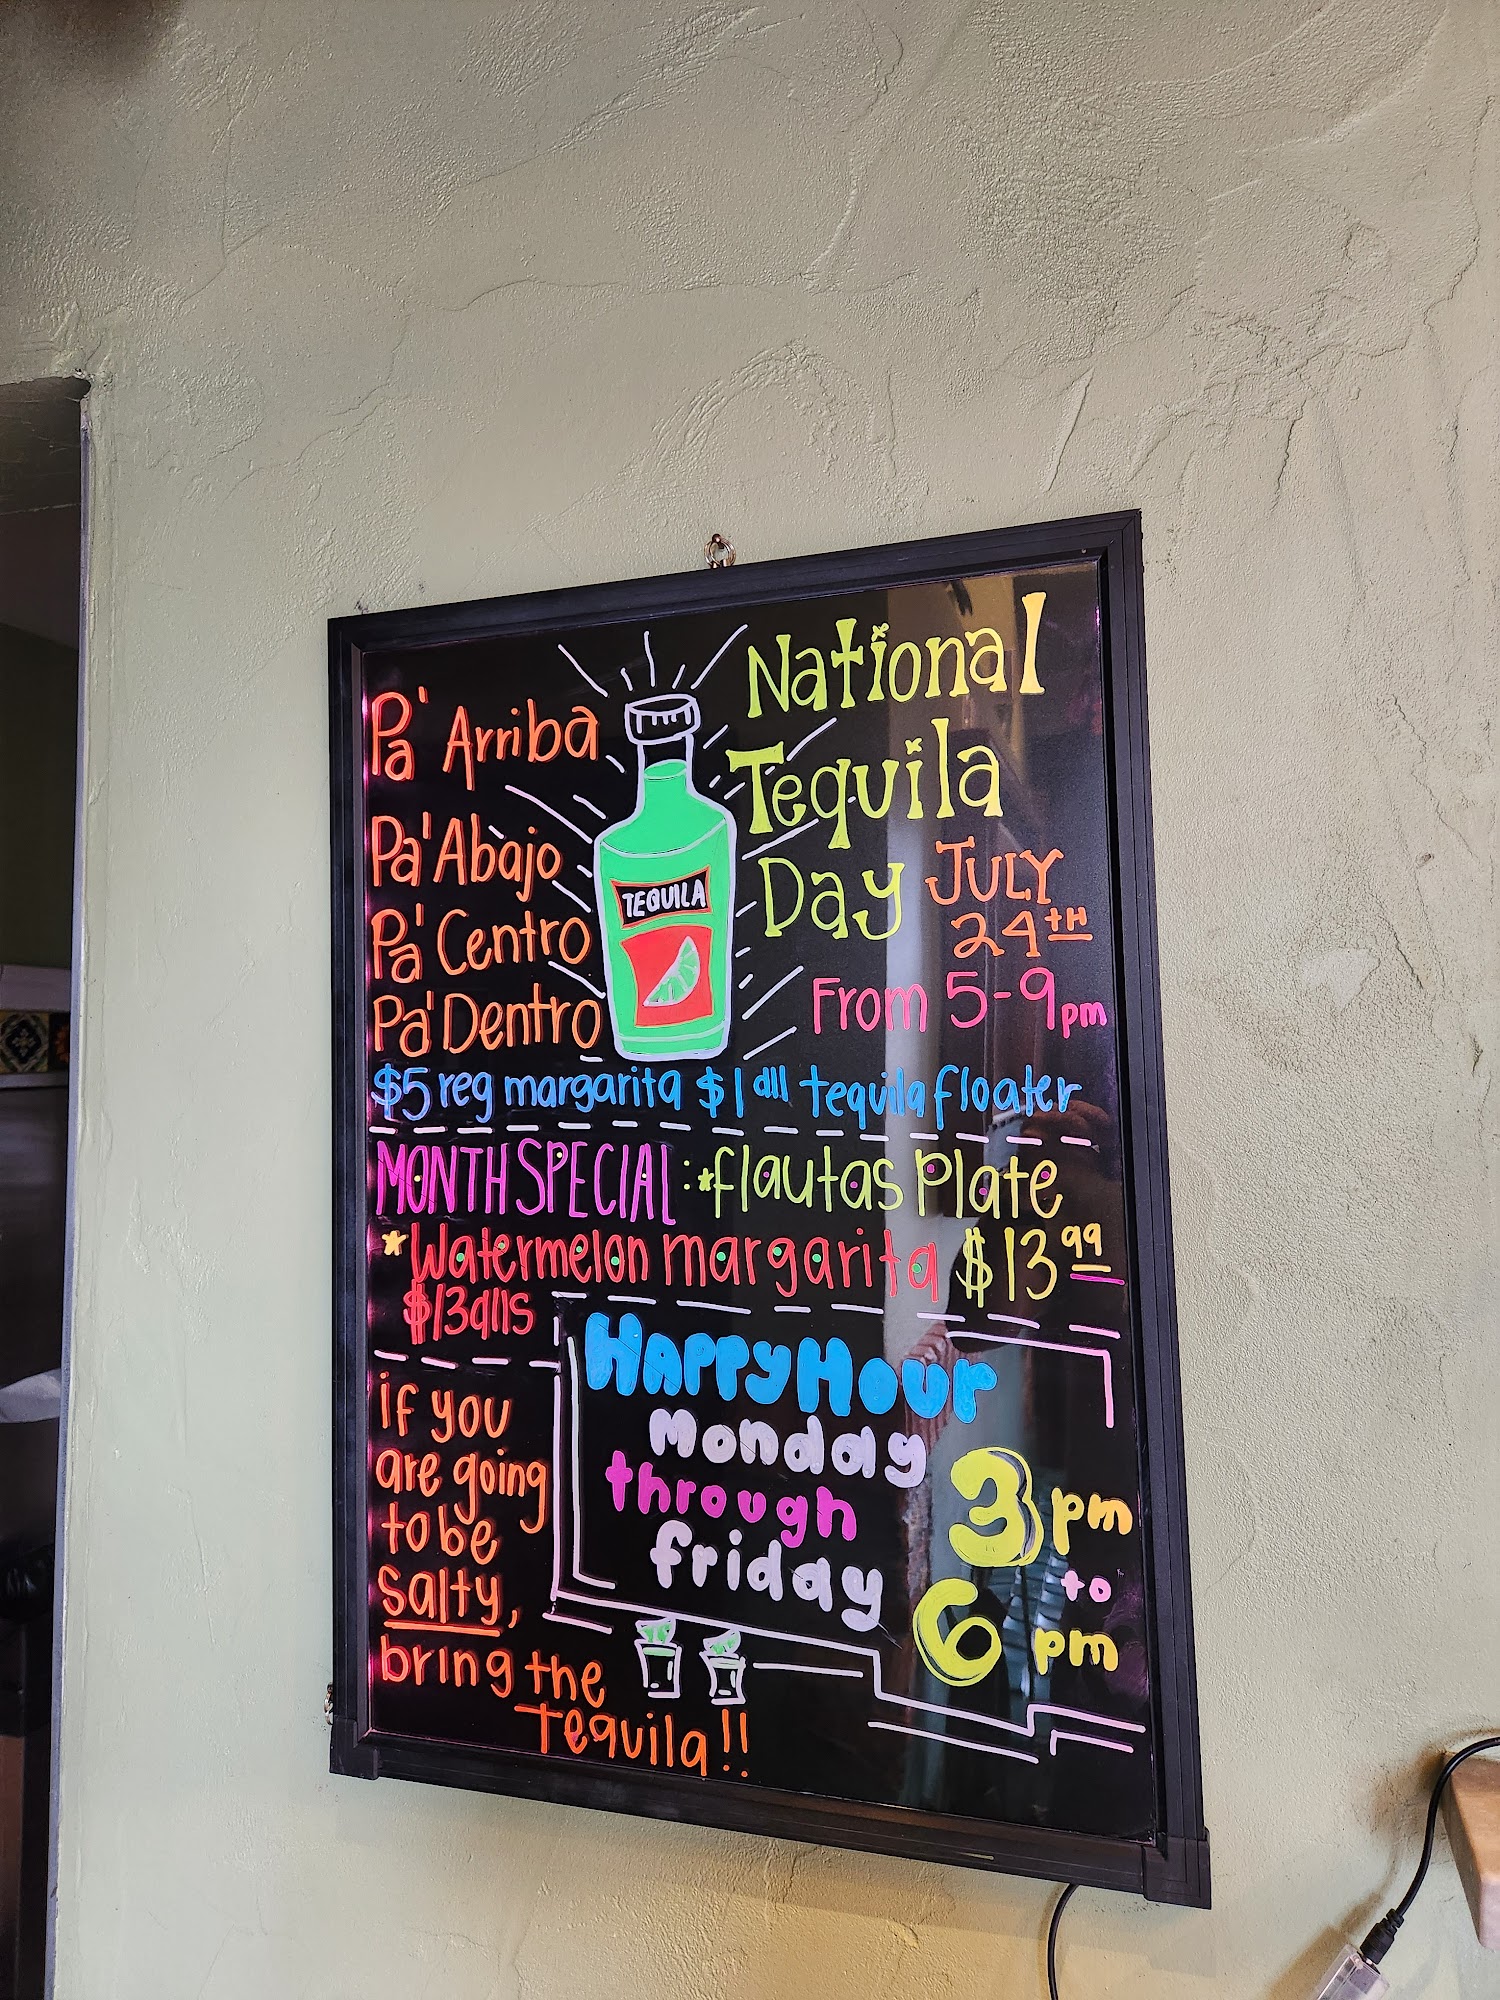 Pa' Arriba
Pa' Abajo
Pa' Centro
Pa' Dentro
TEQUILA
National
Tequila
Day JULY
24TH
From 5-9pm
$5 reg margarita $1 dll tequila floater
MONTH SPECIAL: *flautas Plate
$13.99
*Watermelon margarita
$13dlls
if you
are going
to be
salty,
bring the
Tequila!!
HAPPY HOUR
Monday
through
friday
3 pm
to
6 pm